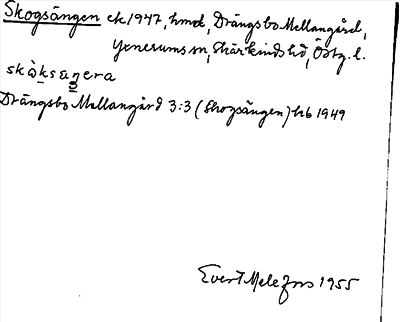 Skogsängen ek 1947, hmd, Drängsbo Mellangård,
Yxnerums sn, Skärkinds hd, Östg. l.
skòksaŋera
Drängsbo Mellangård 3:3 (Skogsängen) hb 1949
Evert Melefors 1955